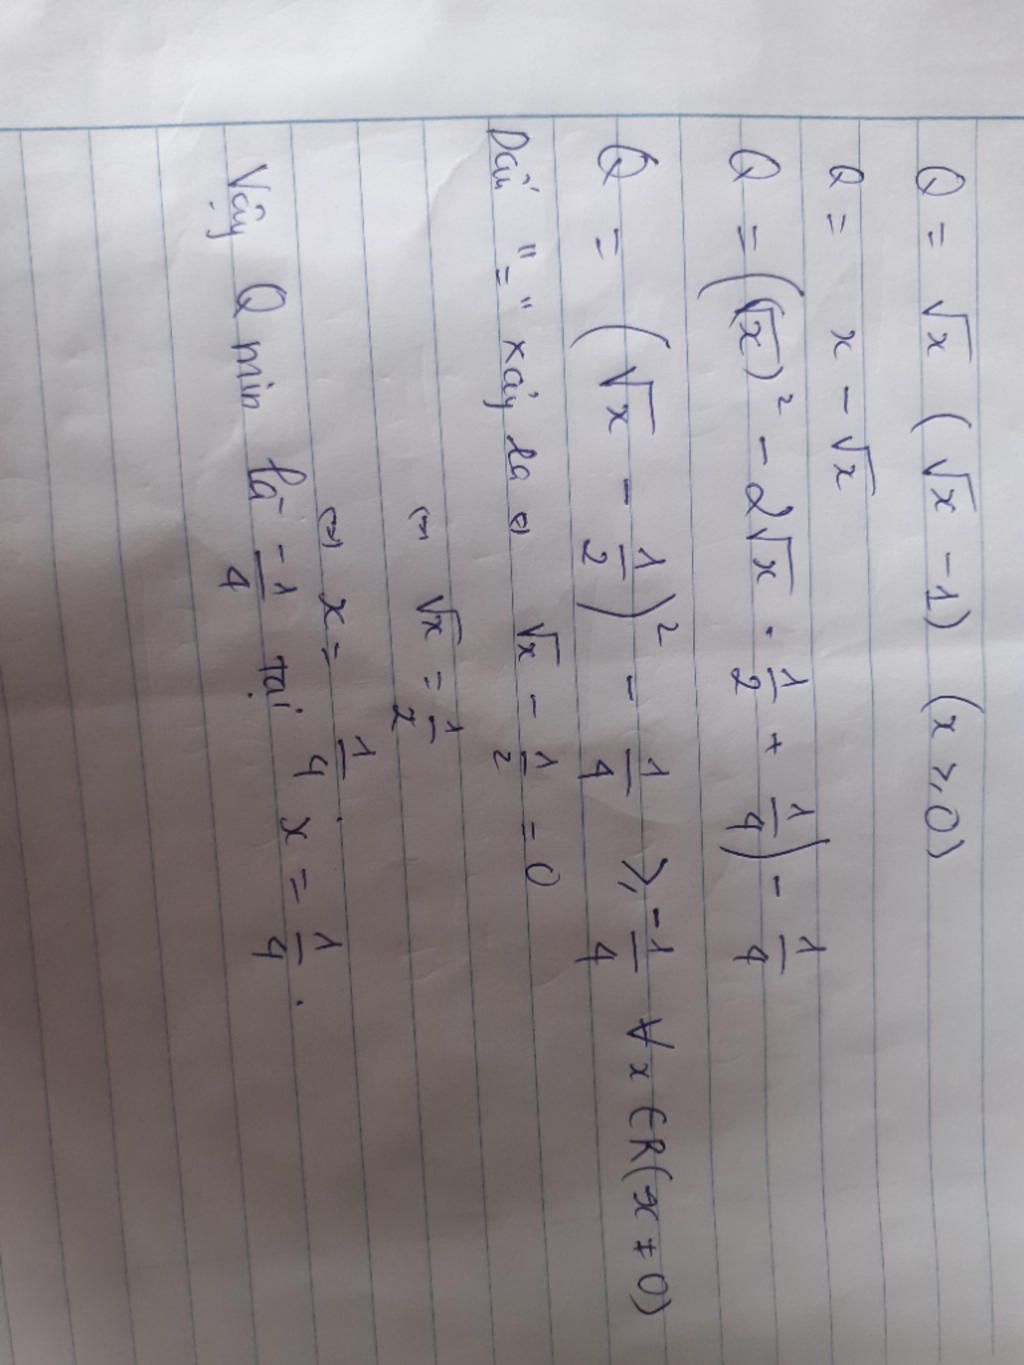 Q = √x (√x - 1) (x ≥ 0)
Q = x - √x
Q = ((√x)² - 2√x . 1/2 + 1/4) - 1/4
Q = (√x - 1/2)² - 1/4 ≥ -1/4 ∀x ∈ R (x ≠ 0)
Dấu "=" xảy ra ⇔ √x - 1/2 = 0
⇔ √x = 1/2
⇔ x = 1/4.
Vậy Q min là -1/4 tại x = 1/4.